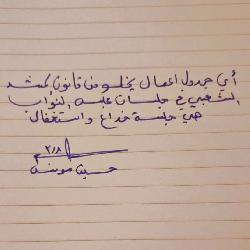 أي جدول اعمال يخلو من قانون الحشد
الشعبي في جلسات مجلس النواب
هي جلسة خداع واستغفال
٣/٨
حسين مونس